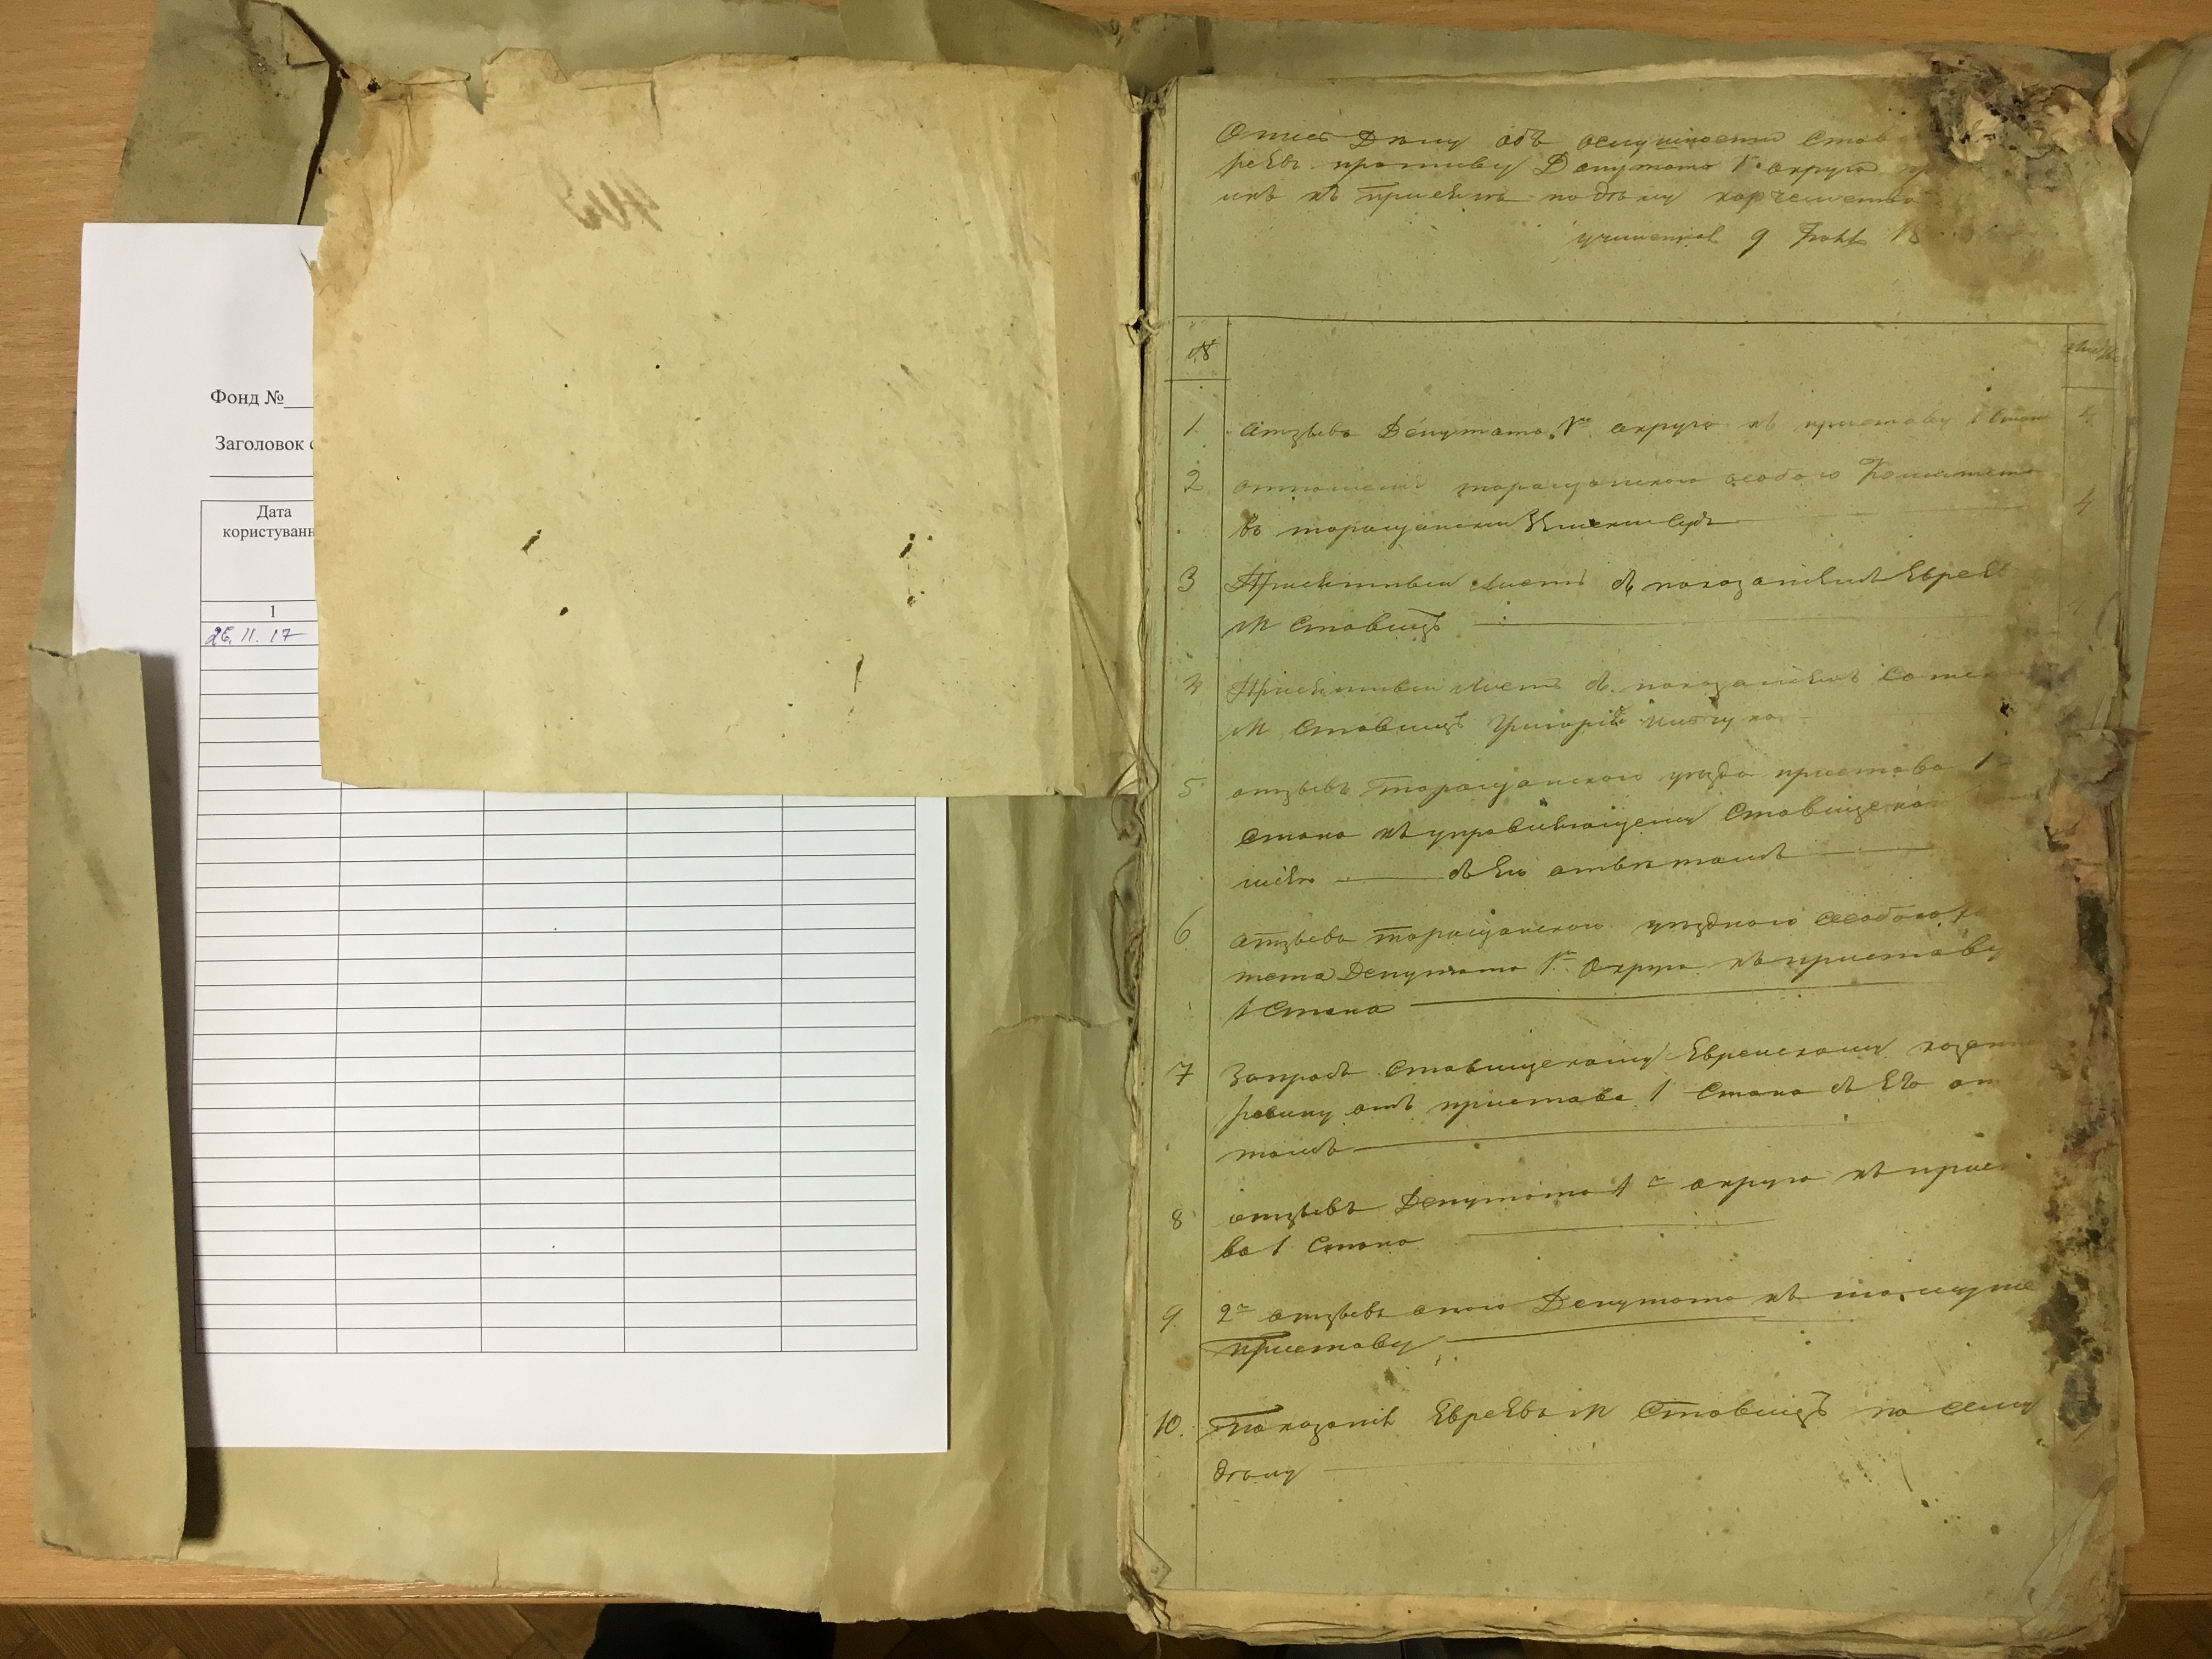 Фонд №
Заголовок с
Дата
користуванн
1
26.11.17
Опись Делу объ ослушности Став
реевъ противу Депутата 1го округа
къ присяге по делу корчемства
учиненной 9 18
№
1 отзывъ Депутата 1го округа къ приставу 1 стана 4
2 отношение таращанского особого Комитета
въ таращанский Земский Судъ 4
3 Присяжный листъ съ показаниемъ Евреевъ
М Ставищъ
4 Присяжный листъ съ показаниемъ
М Ставищъ Григорий
5 отзывъ Таращанского уезда пристава 1
Стана къ управляющему Ставищско
ниемъ съ Его ответомъ
6 отзывъ таращанского уездного особого Ко
тета Депутата 1го Округа къ приставу
1 Стана
7 Запросъ Ставищскому Еврейскому казенн
равину отъ пристава 1 Стана съ Его от
томъ
8 отзывъ Депутата 1го округа къ прист
ва 1 Стана
9 2й отзывъ оного Депутата къ тому же
Приставу
10. Показание Евреевъ М Ставищъ по сему
делу